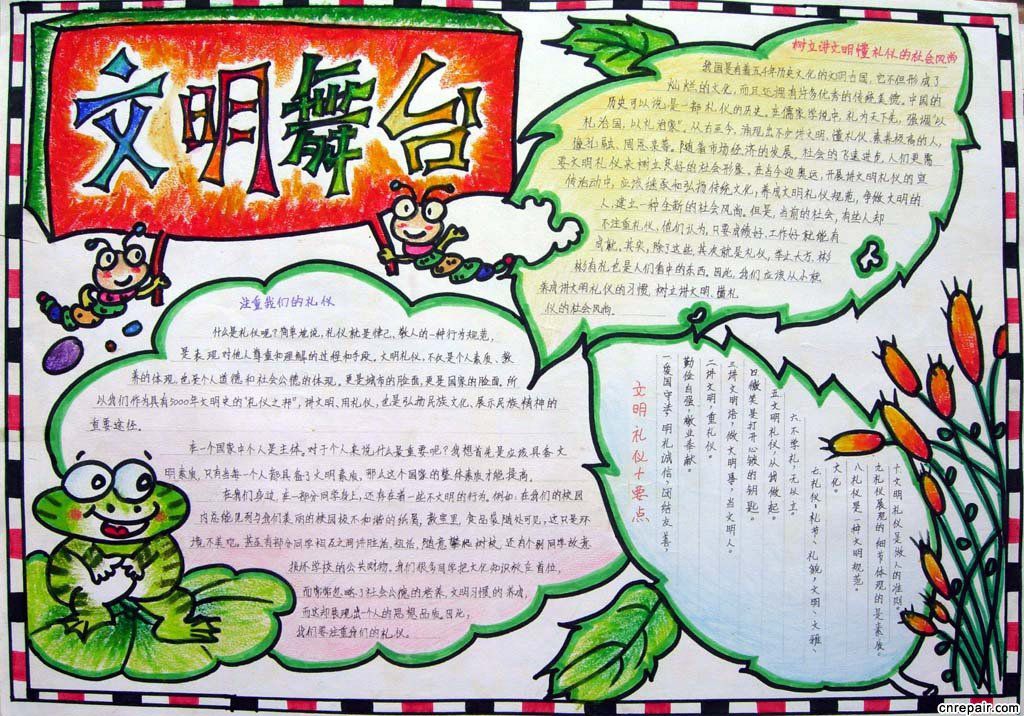 文明舞台
树立讲文明懂礼仪的社会风尚
我国是有着五千年历史文化的文明古国,它不但形成了
灿烂的文化,而且还拥有许多优秀的传统美德。中国的
历史可以说是一部礼仪的历史。在儒家学说中,礼为天下先,强调“以
礼治国,以礼治家”。从古至今,涌现出不少讲文明、懂礼仪、素养极高的人,
像孔融、周恩来等。随着市场经济的发展,社会的飞速进步,人们更需
要文明礼仪来树立良好的社会形象。在当今迎奥运,开展讲文明礼仪的宣
传活动中,应该继承和弘扬传统文化,养成文明礼仪规范,争做文明的
人,建立一种全新的社会风尚。但是,当前的社会,有些人却
不注重礼仪,他们认为,只要成绩好、工作好就能有
成就。其实,除了这些,其次就是礼仪,举止大方、彬
彬有礼也是人们看中的东西。因此,我们应该从小就
养成讲文明礼仪的习惯,树立讲文明、懂礼
仪的社会风尚。
注重我们的礼仪
什么是礼仪呢?简单地说,礼仪就是律己、敬人的一种行为规范,
是表现对他人尊重和理解的过程和手段。文明礼仪,不仅是个人素质、教
养的体现,也是个人道德和社会公德的体现。更是城市的脸面,更是国家的脸面。所
以我们作为具有5000年文明史的“礼仪之邦”,讲文明、用礼仪,也是弘扬民族文化、展示民族精神的
重要途径。
在一个国家中个人是主体。对于个人来说什么最重要呢?我想首先是应该具备文
明素质,只有当每一个人都具备了文明素质,那么这个国家的整体素质才能提高。
在我们身边,在一部分同学身上,还存在着一些不文明的行为。例如:在我们的校园
内总能见到与我们美丽的校园极不和谐的纸屑,教室里,食品袋随处可见,这只是环
境不美吧。甚至有部分同学相互之间讲脏话、粗话,随意攀爬树枝,还有个别同学故意
损坏学校的公共财物。我们很多同学把文化知识放在首位,
而常常忽略了社会公德的培养、文明习惯的养成,
而这却展现出一个人的思想品质。因此:
我们要注重我们的礼仪。
文明礼仪十要点
一爱国守法,明礼诚信,团结友善,
勤俭自强,敬业奉献。
二讲文明,重礼仪。
三讲文明语,做文明事,当文明人。
四微笑是打开心锁的钥匙。
五文明礼仪,从我做起。
六不学礼,无以立。
七礼仪,礼节、礼貌,文明、文雅、
文化。
八礼仪是一种文明规范。
九礼仪展现的细节体现的是素质。
十文明礼仪是做人的准则。
cnrepair.com